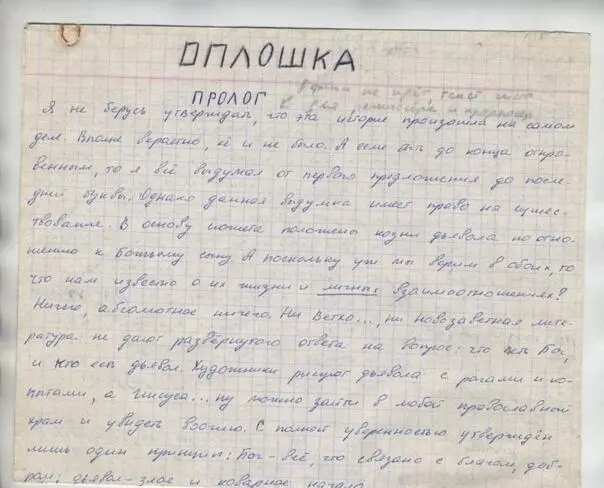 ОПЛОШКА
ПРОЛОГ
не идёт текст
Я не берусь утверждать, что эта история произошла на самом
деле. Вполне вероятно, её и не было. А если быть до конца откро-
венным, то я всё выдумал от первого предложения до после-
дней буквы. Однако данная выдумка имеет право на сущес-
твование. В основу сюжета положены козни дьявола по отно-
шению к Божьему сыну. А поскольку уж мы верим в обоих, то
что нам известно о их жизни и личных взаимоотношениях?
Ничего, абсолютное ничего. Ни Ветхо..., ни Новозаветная лите-
ратура не дают развёрнутого ответа на вопрос: что есть Бог,
и кто есть дьявол. Художники рисуют дьявола с рогами и ко-
пытами, а Иисуса... ну можно зайти в любой православный
храм и увидеть воочию. С полной уверенностью утверждён
лишь один принцип: Бог - всё, что связано с благом, доб-
ром; дьявол - злое и коварное начало.